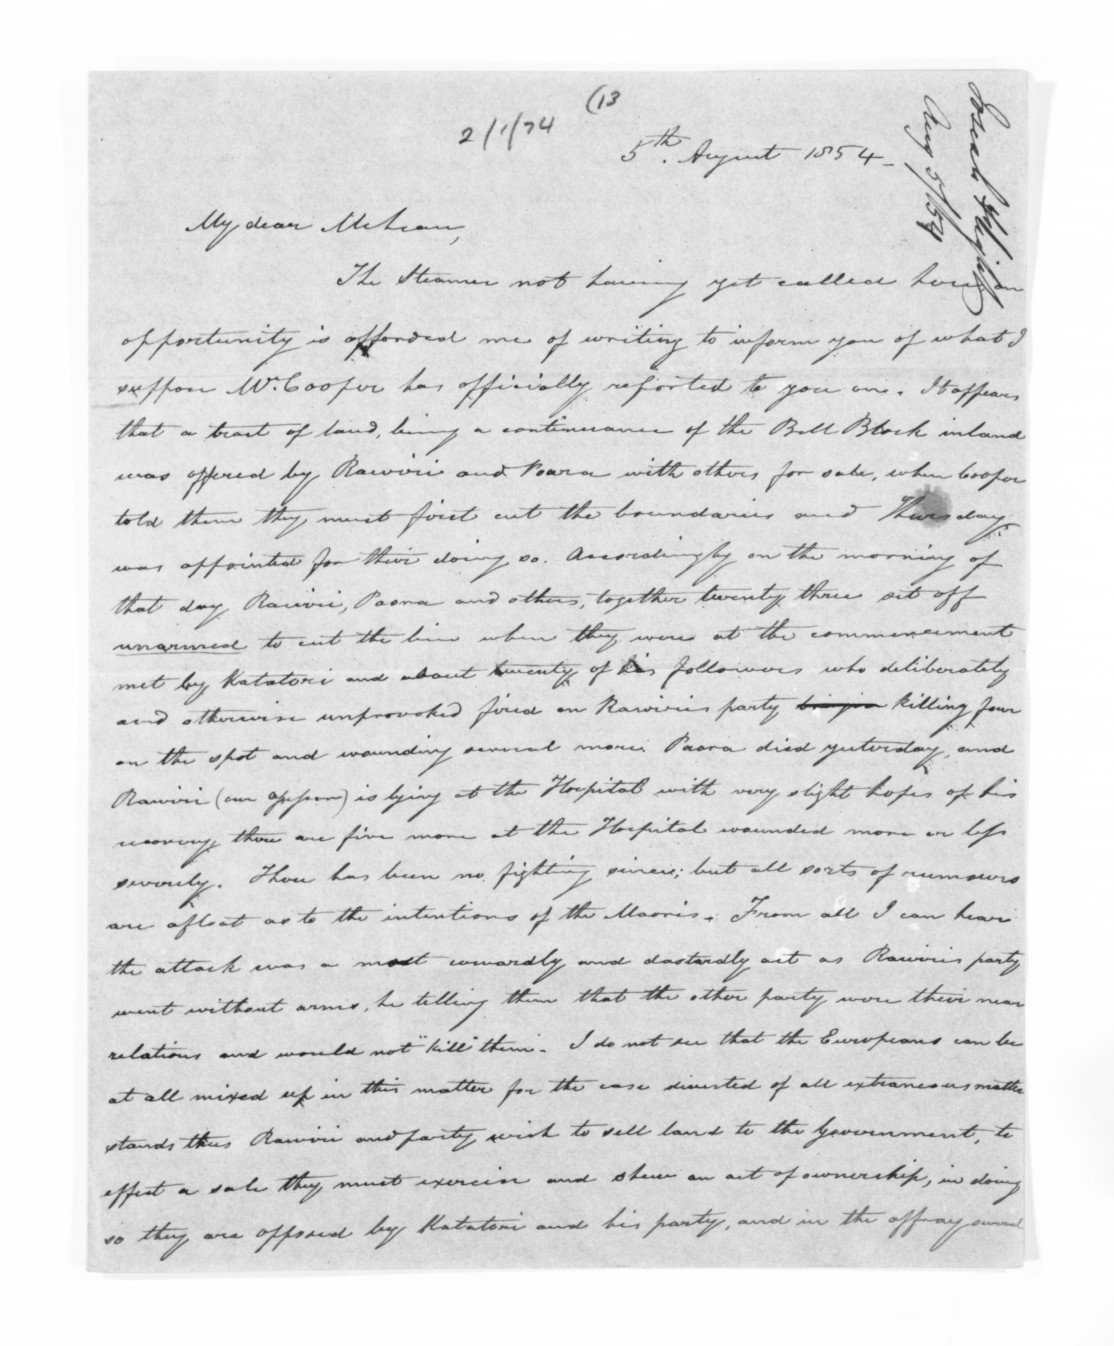 (13
2/1/74
5th. August 1854-
Josiah Flight
Aug 5/54
My dear McLean,
The Steamer not having yet called here an
opportunity is afforded me of writing to inform you of what I
suppose Mr. Cooper has officially reported to you on. It appears
that a tract of land, being a continuance of the Bell Block inland
was offered by Rawiri and Paora with others for sale, when Cooper
told them they must first cut the boundaries and Thursday
was appointed for their doing so. Accordingly on the morning of
that day Rawiri, Paora and others, together twenty three set off
unarmed to cut the line when they were at the commencement
met by Katatori and about twenty of his followers who deliberately
and otherwise unprovoked fired on Rawiri's party killing four
on the spot and wounding several more. Paora died yesterday, and
Rawiri (our assessor) is lying at the Hospital with very slight hopes of his
recovery, there are five more at the Hospital wounded more or less
severely. There has been no fighting since; but all sorts of rumours
are afloat as to the intentions of the Maoris. From all I can hear
the attack was a most cowardly and dastardly act as Rawiri's party
went without arms, he telling them that the other party were their near
relations and would not "kill" them. I do not see that the Europeans can be
at all mixed up in this matter for the case divested of all extraneous matter
stands thus Rawiri and party wish to sell land to the Government, to
effect a sale they must exercise and shew an act of ownership, in doing
so they are opposed by Katatori and his party, and in the affray several